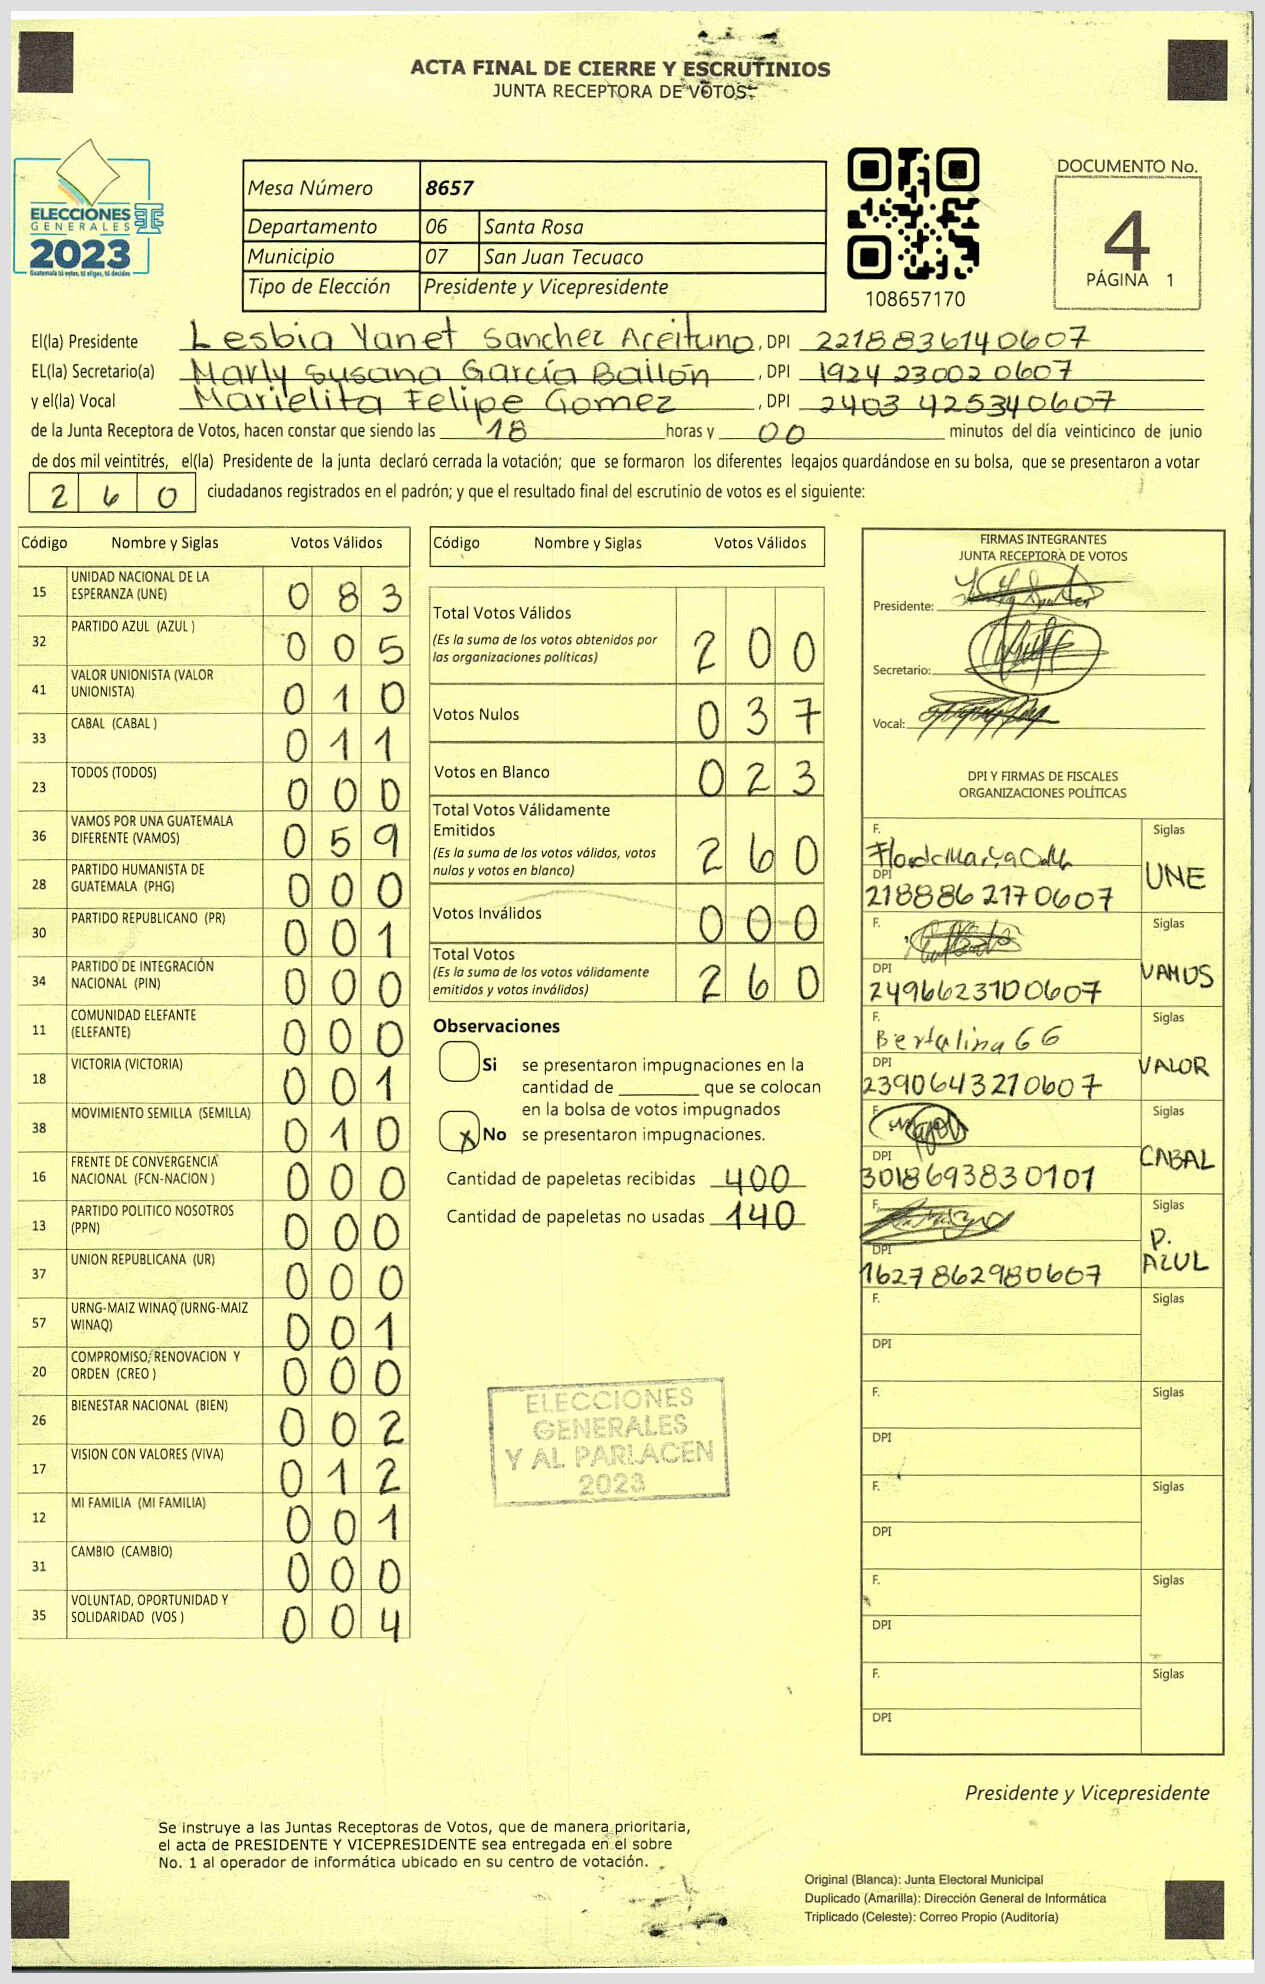 ACTA FINAL DE CIERRE Y ESCRUTINIOS
JUNTA RECEPTORA DE VOTOS
ELECCIONES
GENERALES
2023
Guatemala tú votas, tú eliges, tú decides
Mesa Número 8657
Departamento 06 Santa Rosa
Municipio 07 San Juan Tecuaco
Tipo de Elección Presidente y Vicepresidente
108657170
DOCUMENTO No.
4
PÁGINA 1
El(la) Presidente Lesbia Yanet Sanchez Aceituno, DPI 2218836140607
EL(la) Secretario(a) Marly Susana García Bailón, DPI 1924 23002 0607
y el(la) Vocal Marielita Felipe Gomez, DPI 2403 425340607
de la Junta Receptora de Votos, hacen constar que siendo las 18 horas y 00 minutos del día veinticinco de junio
de dos mil veintitrés, el(la) Presidente de la junta declaró cerrada la votación; que se formaron los diferentes legajos guardándose en su bolsa, que se presentaron a votar
260 ciudadanos registrados en el padrón; y que el resultado final del escrutinio de votos es el siguiente:
Código Nombre y Siglas Votos Válidos
15 UNIDAD NACIONAL DE LA
ESPERANZA (UNE) 083
32 PARTIDO AZUL (AZUL ) 005
41 VALOR UNIONISTA (VALOR
UNIONISTA) 010
33 CABAL (CABAL ) 011
23 TODOS (TODOS) 000
36 VAMOS POR UNA GUATEMALA
DIFERENTE (VAMOS) 059
28 PARTIDO HUMANISTA DE
GUATEMALA (PHG) 000
30 PARTIDO REPUBLICANO (PR) 001
34 PARTIDO DE INTEGRACIÓN
NACIONAL (PIN) 000
11 COMUNIDAD ELEFANTE
(ELEFANTE) 000
18 VICTORIA (VICTORIA) 001
38 MOVIMIENTO SEMILLA (SEMILLA) 010
16 FRENTE DE CONVERGENCIA
NACIONAL (FCN-NACION ) 000
13 PARTIDO POLITICO NOSOTROS
(PPN) 000
37 UNION REPUBLICANA (UR) 000
57 URNG-MAIZ WINAQ (URNG-MAIZ
WINAQ) 001
20 COMPROMISO, RENOVACION Y
ORDEN (CREO ) 000
26 BIENESTAR NACIONAL (BIEN) 002
17 VISION CON VALORES (VIVA) 012
12 MI FAMILIA (MI FAMILIA) 001
31 CAMBIO (CAMBIO) 000
35 VOLUNTAD, OPORTUNIDAD Y
SOLIDARIDAD (VOS ) 004
Código Nombre y Siglas Votos Válidos
Total Votos Válidos
(Es la suma de los votos obtenidos por
las organizaciones políticas) 200
Votos Nulos 037
Votos en Blanco 023
Total Votos Válidamente
Emitidos
(Es la suma de los votos válidos, votos
nulos y votos en blanco) 260
Votos Inválidos 000
Total Votos
(Es la suma de los votos válidamente
emitidos y votos inválidos) 260
Observaciones
Si se presentaron impugnaciones en la
cantidad de ________ que se colocan
en la bolsa de votos impugnados
X No se presentaron impugnaciones.
Cantidad de papeletas recibidas 400
Cantidad de papeletas no usadas 140
ELECCIONES
GENERALES
Y AL PARLACEN
2023
FIRMAS INTEGRANTES
JUNTA RECEPTORA DE VOTOS
Presidente:
Secretario:
Vocal:
DPI Y FIRMAS DE FISCALES
ORGANIZACIONES POLÍTICAS
F. Siglas
DPI UNE
2188862170607
F. Siglas
DPI VAMOS
2496623100607
F. Bertalina GG Siglas
DPI VALOR
2390643210607
F. Siglas
DPI CABAL
3018693830101
F. Siglas
DPI P. AZUL
1627862980607
F. Siglas
DPI
F. Siglas
DPI
F. Siglas
DPI
F. Siglas
DPI
F. Siglas
DPI
Presidente y Vicepresidente
Se instruye a las Juntas Receptoras de Votos, que de manera prioritaria,
el acta de PRESIDENTE Y VICEPRESIDENTE sea entregada en el sobre
No. 1 al operador de informática ubicado en su centro de votación.
Original (Blanca): Junta Electoral Municipal
Duplicado (Amarilla): Dirección General de Informática
Triplicado (Celeste): Correo Propio (Auditoría)